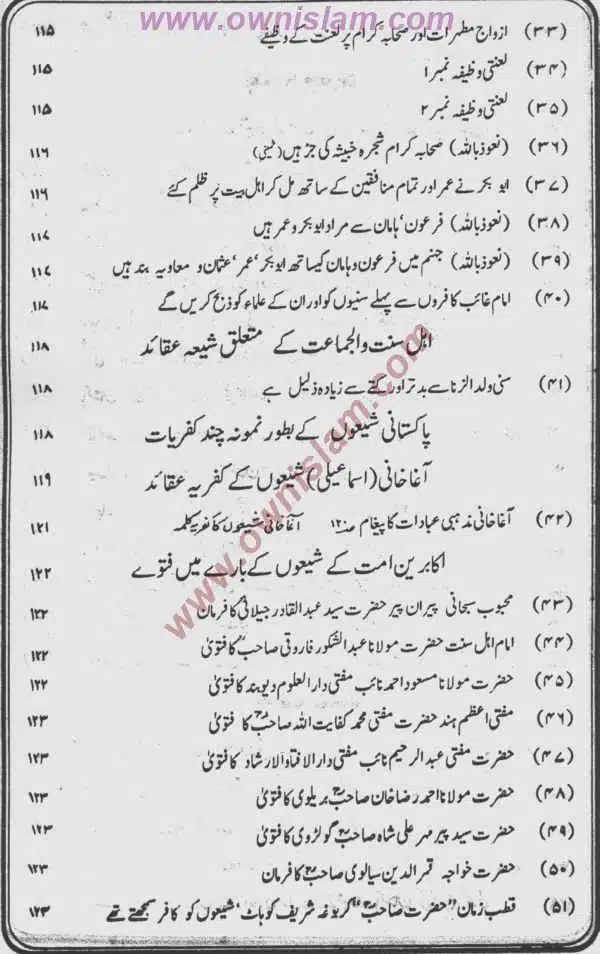 www.ownislam.com
(۳۳) ازواج مطہرات اور صحابہ کرام پر لعنت کے وظیفے ۱۱۵
(۳۴) لعنتی وظیفہ نمبر ۱ ۱۱۵
(۳۵) لعنتی وظیفہ نمبر ۲ ۱۱۵
(۳۶) (نعوذ باللہ) صحابہ کرام شجرہ خبیثہ کی جڑ ہیں (خمینی) ۱۱۶
(۳۷) ابو بکر نے عمر اور تمام منافقین کے ساتھ مل کر اہل بیت پر ظلم کئے ۱۱۶
(۳۸) (نعوذ باللہ) فرعون‘ ہامان سے مراد ابو بکر و عمر ہیں ۱۱۷
(۳۹) (نعوذ باللہ) جہنم میں فرعون و ہامان کیساتھ ابو بکر‘ عمر‘ عثمان و معاویہ بند ہیں ۱۱۷
(۴۰) امام غائب کافروں سے پہلے سنیوں کو اور ان کے علماء کو ذبح کریں گے ۱۱۷
اہل سنت والجماعت کے متعلق شیعہ عقائد ۱۱۸
(۴۱) سنی ولد الزنا سے بدتر اور کتے سے زیادہ ذلیل ہے ۱۱۸
پاکستانی شیعوں کے بطور نمونہ چند کفریات ۱۱۸
آغا خانی (اسماعیلی) شیعوں کے کفریہ عقائد ۱۱۹
(۴۲) آغا خانی مذہبی عبادات کا پیغام صـ۱۲۰ آغا خانی شیعوں کا کفریہ کلمہ ۱۲۱
اکابرین امت کے شیعوں کے بارے میں فتوے ۱۲۲
(۴۳) محبوب سبحانی پیران پیر حضرت سید عبدالقادر جیلانیؒ کا فرمان ۱۲۲
(۴۴) امام اہل سنت حضرت مولانا عبدالشکور فاروقی صاحبؒ کا فتویٰ ۱۲۲
(۴۵) حضرت مولانا مسعود احمد نائب مفتی دارالعلوم دیوبند کا فتویٰ ۱۲۲
(۴۶) مفتی اعظم ہند حضرت مفتی محمد کفایت اللہ صاحبؒ کا فتویٰ ۱۲۳
(۴۷) حضرت مفتی عبدالرحیم نائب مفتی دارالافتاء والارشاد کا فتویٰ ۱۲۳
(۴۸) حضرت مولانا احمد رضا خان صاحبؒ بریلوی کا فتویٰ ۱۲۳
(۴۹) حضرت سید پیر مہر علی شاہ صاحبؒ گولڑوی کا فتویٰ ۱۲۳
(۵۰) حضرت خواجہ قمر الدین سیالوی صاحبؒ کا فرمان ۱۲۳
(۵۱) قطب زمان ’’حضرت صاحبؒ‘‘ کربوغہ شریف کوہاٹ‘ شیعوں کو کافر سمجھتے تھے ۱۲۳
www.ownislam.com